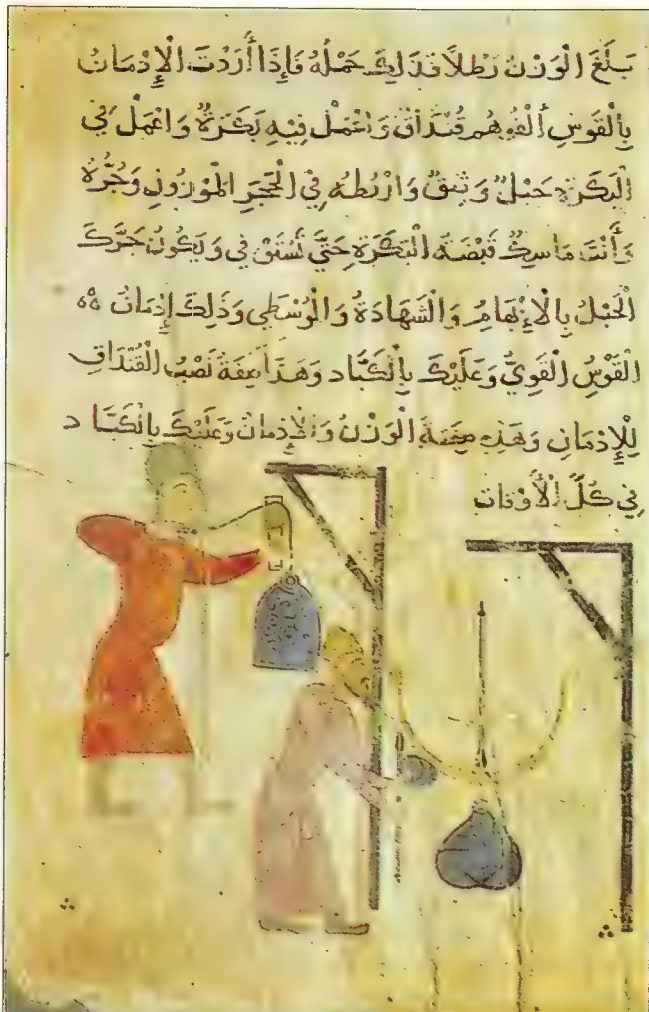 بَلَغَ الْوَزْنُ رَطْلاً فَذَلِكَ حَمْلُهُ فَإِذَا أَرَدْتَ الْإِدْمَانُ
بِالْقَوْسِ قُنْدَاقْ وَاعْمَلْ فِيهِ بَكَرَةٌ وَاعْمَلْ فِي
الْبَكَرَةِ حَبْلٌ وَثِيقٌ وَارْبُطْهُ فِي الْحَجَرِ الْمَوْزُونِ وَجُرَّهُ
وَأَنْتَ مَاسِكٌ قَبْضَهُ الْبَكَرَةِ حَتَّى تَسْتَوْفِي وَيَكُونُ جَرَّكَ
الْحَبْلُ بِالْإِبْهَامُ وَالشَّهَادَةُ وَالْوُسْطَي وَذَلِكَ إِدْمَانُ
الْقَوْسُ الْقَوِيُّ وَعَلَيْكَ بِالْكَبَّادِ وَهَذَا صِفَةُ نَصْبُ الْقُنْدَاقِ
لِلْإِدْمَانِ وَهَذِهِ الْوَزْنُ وَالْإِدْمَانُ وَعَلَيْكَ بِالْكَبَّادِ
فِي كُلِّ الْأَوْقَاتِ